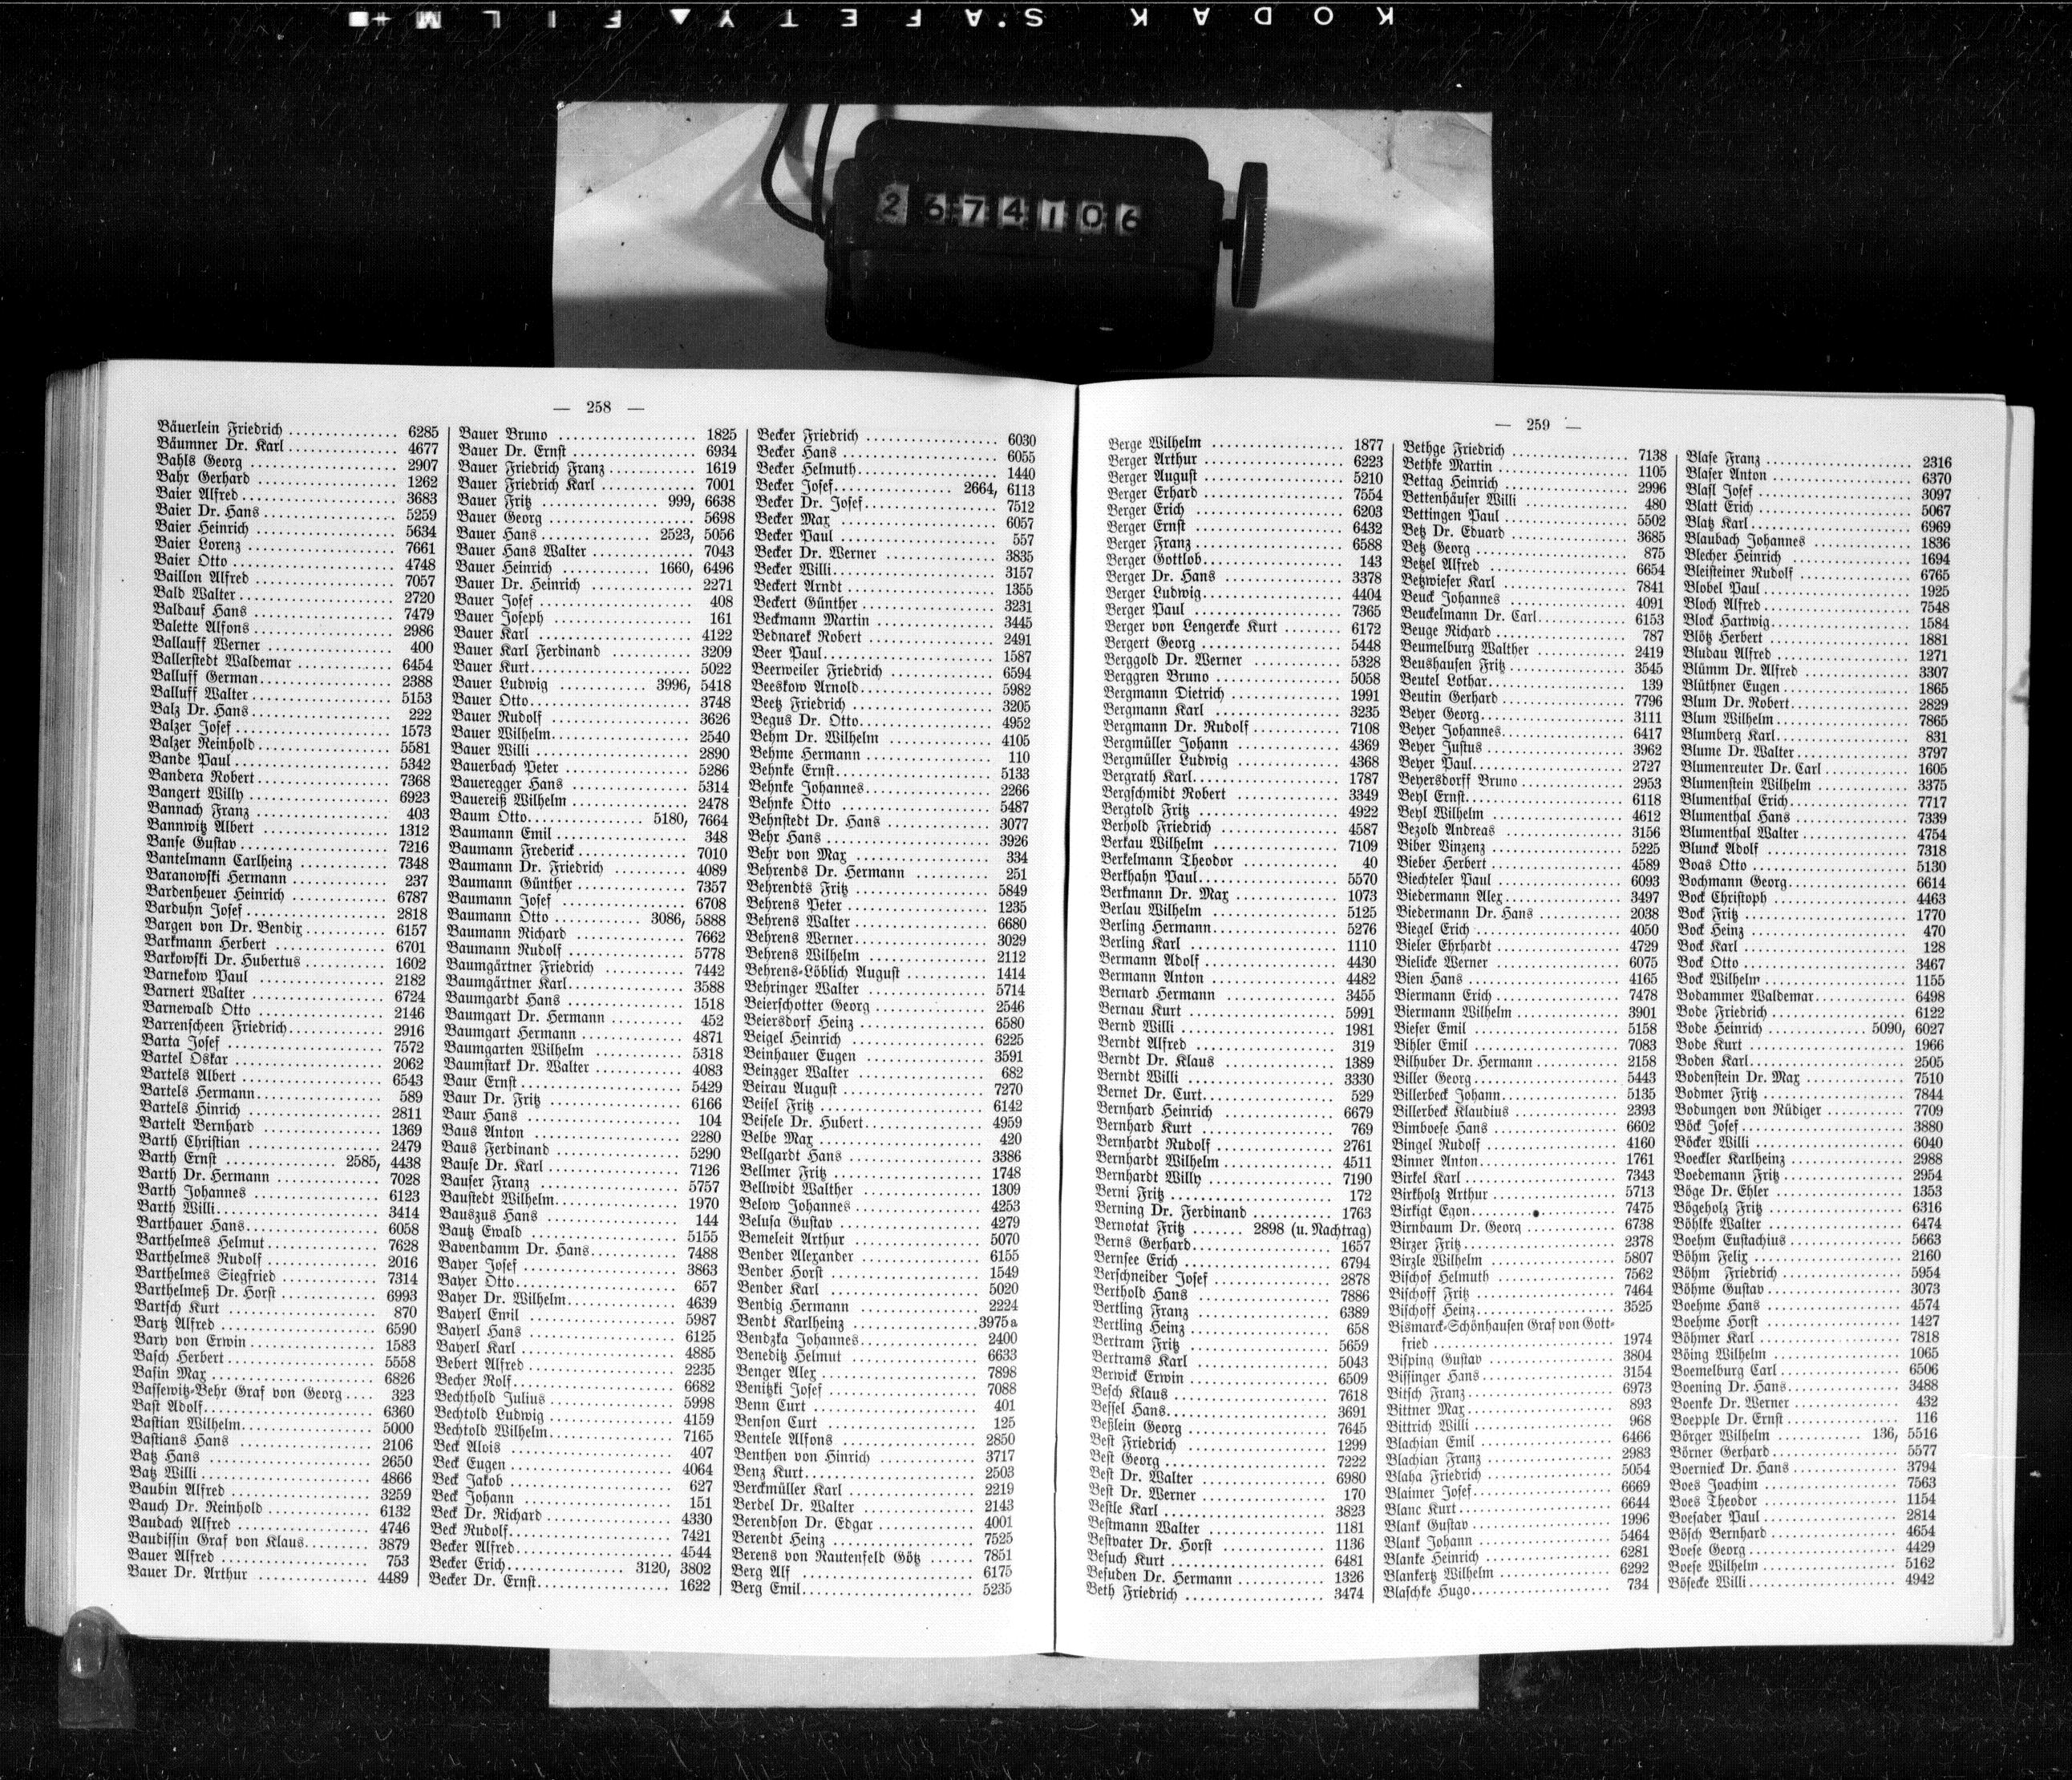 KODAK S·AFETY▲FILM
2 674106
— 258 —
Bäuerlein Friedrich 6285
Bäumner Dr. Karl 4677
Bahls Georg 2907
Bahr Gerhard 1262
Baier Alfred 3683
Baier Dr. Hans 5259
Baier Heinrich 5634
Baier Lorenz 7661
Baier Otto 4748
Baillon Alfred 7057
Bald Walter 2720
Baldauf Hans 7479
Balette Alfons 2986
Ballauff Werner 400
Ballerstedt Waldemar 6454
Balluff German 2388
Balluff Walter 5153
Balz Dr. Hans 222
Balzer Josef 1573
Balzer Reinhold 5581
Bande Paul 5342
Bandera Robert 7368
Bangert Willy 6923
Bannach Franz 403
Bannwitz Albert 1312
Banse Gustav 7216
Bantelmann Carlheinz 7348
Baranowski Hermann 237
Bardenheuer Heinrich 6787
Barduhn Josef 2818
Bargen von Dr. Bendix 6157
Barkmann Herbert 6701
Barkowski Dr. Hubertus 1602
Barnekow Paul 2182
Barnert Walter 6724
Barnewald Otto 2146
Barrenscheen Friedrich 2916
Barta Josef 7572
Bartel Oskar 2062
Bartels Albert 6543
Bartels Hermann 589
Bartels Hinrich 2811
Bartelt Bernhard 1369
Barth Christian 2479
Barth Ernst 2585, 4438
Barth Dr. Hermann 7028
Barth Johannes 6123
Barth Willi 3414
Barthauer Hans 6058
Barthelmes Helmut 7628
Barthelmes Rudolf 2016
Barthelmes Siegfried 7314
Barthelmeß Dr. Horst 6993
Bartsch Kurt 870
Bartz Alfred 6590
Bary von Erwin 1583
Basch Herbert 5558
Basin Max 6826
Bassewitz-Behr Graf von Georg 323
Bast Adolf 6360
Bastian Wilhelm 5000
Bastians Hans 2106
Batz Hans 2650
Batz Willi 4866
Baubin Alfred 3259
Bauch Dr. Reinhold 6132
Baudach Alfred 4746
Baudissin Graf von Klaus 3879
Bauer Alfred 753
Bauer Dr. Arthur 4489
Bauer Bruno 1825
Bauer Dr. Ernst 6934
Bauer Friedrich Franz 1619
Bauer Friedrich Karl 7001
Bauer Fritz 999, 6638
Bauer Georg 5698
Bauer Hans 2523, 5056
Bauer Hans Walter 7043
Bauer Heinrich 1660, 6496
Bauer Dr. Heinrich 2271
Bauer Josef 408
Bauer Joseph 161
Bauer Karl 4122
Bauer Karl Ferdinand 3209
Bauer Kurt 5022
Bauer Ludwig 3996, 5418
Bauer Otto 3748
Bauer Rudolf 3626
Bauer Wilhelm 2540
Bauer Willi 2890
Bauerbach Peter 5286
Baueregger Hans 5314
Bauereiß Wilhelm 2478
Baum Otto 5180, 7664
Baumann Emil 348
Baumann Frederick 7010
Baumann Dr. Friedrich 4089
Baumann Günther 7357
Baumann Josef 6708
Baumann Otto 3086, 5888
Baumann Richard 7662
Baumann Rudolf 5778
Baumgärtner Friedrich 7442
Baumgärtner Karl 3588
Baumgardt Hans 1518
Baumgart Dr. Hermann 452
Baumgart Hermann 4871
Baumgarten Wilhelm 5318
Baumstark Dr. Walter 4083
Baur Ernst 5429
Baur Dr. Fritz 6166
Baur Hans 104
Baus Anton 2280
Baus Ferdinand 5290
Bause Dr. Karl 7126
Bauser Franz 5757
Baustedt Wilhelm 1970
Bauszus Hans 144
Bautz Ewald 5155
Bavendamm Dr. Hans 7488
Bayer Josef 3863
Bayer Otto 657
Bayer Dr. Wilhelm 4639
Bayerl Emil 5987
Bayerl Hans 6125
Bayerl Karl 4885
Bebert Alfred 2235
Becher Rolf 6682
Bechthold Julius 5998
Bechtold Ludwig 4159
Bechtold Wilhelm 7165
Beck Alois 407
Beck Eugen 4064
Beck Jakob 627
Beck Johann 151
Beck Dr. Richard 4330
Beck Rudolf 7421
Becker Alfred 4544
Becker Erich 3120, 3802
Becker Dr. Ernst 1622
Becker Friedrich 6030
Becker Hans 6055
Becker Helmuth 1440
Becker Josef 2664, 6113
Becker Dr. Josef 7512
Becker Max 6057
Becker Paul 557
Becker Dr. Werner 3835
Becker Willi 3157
Beckert Arndt 1355
Beckert Günther 3231
Beckmann Martin 3445
Bednarek Robert 2491
Beer Paul 1587
Beerweiler Friedrich 6594
Beeskow Arnold 5982
Beetz Friedrich 3205
Begus Dr. Otto 4952
Behm Dr. Wilhelm 4105
Behme Hermann 110
Behnke Ernst 5133
Behnke Johannes 2266
Behnke Otto 5487
Behnstedt Dr. Hans 3077
Behr Hans 3926
Behr von Max 334
Behrends Dr. Hermann 251
Behrendts Fritz 5849
Behrens Peter 1235
Behrens Walter 6680
Behrens Werner 3029
Behrens Wilhelm 2112
Behrens-Löblich August 1414
Behringer Walter 5714
Beierschotter Georg 2546
Beiersdorf Heinz 6580
Beigel Heinrich 6225
Beinhauer Eugen 3591
Beinzger Walter 682
Beirau August 7270
Beisel Fritz 6142
Beisele Dr. Hubert 4959
Belbe Max 420
Bellgardt Hans 3386
Bellmer Fritz 1748
Bellwidt Walther 1309
Below Johannes 4253
Belusa Gustav 4279
Bemeleit Arthur 5070
Bender Alexander 6155
Bender Horst 1549
Bender Karl 5020
Bendig Hermann 2224
Bendt Karlheinz 3975a
Bendzka Johannes 2400
Beneditz Helmut 6633
Benger Alex 7898
Benitzki Josef 7088
Benn Curt 401
Benson Curt 125
Bentele Alfons 2850
Benthen von Hinrich 3717
Benz Kurt 2503
Berckmüller Karl 2219
Berdel Dr. Walter 2143
Berendson Dr. Edgar 4001
Berendt Heinz 7525
Berens von Rautenfeld Götz 7851
Berg Alf 6175
Berg Emil 5235
— 259 —
Berge Wilhelm 1877
Berger Arthur 6223
Berger August 5210
Berger Erhard 7554
Berger Erich 6203
Berger Ernst 6432
Berger Franz 6588
Berger Gottlob 143
Berger Dr. Hans 3378
Berger Ludwig 4404
Berger Paul 7365
Berger von Lengercke Kurt 6172
Bergert Georg 5448
Berggold Dr. Werner 5328
Berggren Bruno 5058
Bergmann Dietrich 1991
Bergmann Karl 3235
Bergmann Dr. Rudolf 7108
Bergmüller Johann 4369
Bergmüller Ludwig 4368
Bergrath Karl 1787
Bergschmidt Robert 3349
Bergtold Fritz 4922
Berhold Friedrich 4587
Berkau Wilhelm 7109
Berkelmann Theodor 40
Berkhahn Paul 5570
Berkmann Dr. Max 1073
Berlau Wilhelm 5125
Berling Hermann 5276
Berling Karl 1110
Bermann Adolf 4430
Bermann Anton 4482
Bernard Hermann 3455
Bernau Kurt 5991
Bernd Willi 1981
Berndt Alfred 319
Berndt Dr. Klaus 1389
Berndt Willi 3330
Bernet Dr. Curt 529
Bernhard Heinrich 6679
Bernhard Kurt 769
Bernhardt Rudolf 2761
Bernhardt Wilhelm 4511
Bernhardt Willy 7190
Berni Fritz 172
Berning Dr. Ferdinand 1763
Bernotat Fritz 2898 (u. Nachtrag)
Berns Gerhard 1657
Bernsee Erich 6794
Berschneider Josef 2878
Berthold Hans 7886
Bertling Franz 6389
Bertling Heinz 658
Bertram Fritz 5659
Bertrams Karl 5043
Berwick Erwin 6509
Besch Klaus 7618
Bessel Hans 3691
Beßlein Georg 7645
Best Friedrich 1299
Best Georg 7222
Best Dr. Walter 6980
Best Dr. Werner 170
Bestle Karl 3823
Bestmann Walter 1181
Bestvater Dr. Horst 1136
Besuch Kurt 6481
Besuden Dr. Hermann 1326
Beth Friedrich 3474
Bethge Friedrich 7138
Bethke Martin 1105
Bettag Heinrich 2996
Bettenhäuser Willi 480
Bettingen Paul 5502
Betz Dr. Eduard 3685
Betz Georg 875
Betzel Alfred 6654
Betzwieser Karl 7841
Beuck Johannes 4091
Beuckelmann Dr. Carl 6153
Beuge Richard 787
Beumelburg Walther 2419
Beushausen Fritz 3545
Beutel Lothar 139
Beutin Gerhard 7796
Beyer Georg 3111
Beyer Johannes 6417
Beyer Justus 3962
Beyer Paul 2727
Beyersdorff Bruno 2953
Beyl Ernst 6118
Beyl Wilhelm 4612
Bezold Andreas 3156
Biber Vinzenz 5225
Bieber Herbert 4589
Biechteler Paul 6093
Biedermann Alex 3497
Biedermann Dr. Hans 2038
Biegel Erich 4050
Bieler Ehrhardt 4729
Bielicke Werner 6075
Bien Hans 4165
Biermann Erich 7478
Biermann Wilhelm 3901
Bieser Emil 5158
Bihler Emil 7083
Bilhuber Dr. Hermann 2158
Biller Georg 5443
Billerbeck Johann 5135
Billerbeck Klaudius 2393
Bimboese Hans 6602
Bingel Rudolf 4160
Binner Anton 1761
Birkel Karl 7343
Birkholz Arthur 5713
Birkigt Egon 7475
Birnbaum Dr. Georg 6738
Birzer Fritz 2378
Birzle Wilhelm 5807
Bischof Helmuth 7562
Bischoff Fritz 7464
Bischoff Heinz 3525
Bismarck-Schönhausen Graf von Gott-
fried 1974
Bisping Gustav 3804
Bissinger Hans 3154
Bitsch Franz 6973
Bittner Max 893
Bittrich Willi 968
Blachian Emil 6466
Blachian Franz 2983
Blaha Friedrich 5054
Blaimer Josef 6669
Blanc Kurt 6644
Blank Gustav 1996
Blank Johann 5464
Blanke Heinrich 6281
Blankertz Wilhelm 6292
Blaschke Hugo 734
Blase Franz 2316
Blaser Anton 6370
Blasl Josef 3097
Blatt Erich 5067
Blatz Karl 6969
Blaubach Johannes 1836
Blecher Heinrich 1694
Bleisteiner Rudolf 6765
Blobel Paul 1925
Bloch Alfred 7548
Block Hartwig 1584
Blötz Herbert 1881
Bludau Alfred 1271
Blümm Dr. Alfred 3307
Blüthner Eugen 1865
Blum Dr. Robert 2829
Blum Wilhelm 7865
Blumberg Karl 831
Blume Dr. Walter 3797
Blumenreuter Dr. Carl 1605
Blumenstein Wilhelm 3375
Blumenthal Erich 7717
Blumenthal Hans 7339
Blumenthal Walter 4754
Blunck Adolf 7318
Boas Otto 5130
Bochmann Georg 6614
Bock Christoph 4463
Bock Fritz 1770
Bock Heinz 470
Bock Karl 128
Bock Otto 3467
Bock Wilhelm 1155
Bodammer Waldemar 6498
Bode Friedrich 6122
Bode Heinrich 5090, 6027
Bode Kurt 1966
Boden Karl 2505
Bodenstein Dr. Max 7510
Bodmer Fritz 7844
Bodungen von Rüdiger 7709
Böck Josef 3880
Böcker Willi 6040
Boeckler Karlheinz 2988
Boedemann Fritz 2954
Böge Dr. Ehler 1353
Bögeholz Fritz 6316
Böhlke Walter 6474
Boehm Eustachius 5663
Böhm Felix 2160
Böhm Friedrich 5954
Böhme Gustav 3073
Boehme Hans 4574
Boehme Horst 1427
Böhmer Karl 7818
Böing Wilhelm 1065
Boemelburg Carl 6506
Boening Dr. Hans 3488
Boenke Dr. Werner 432
Boepple Dr. Ernst 116
Börger Wilhelm 136, 5516
Börner Gerhard 5577
Boernieck Dr. Hans 3794
Boes Joachim 7563
Boes Theodor 1154
Boesader Paul 2814
Bösch Bernhard 4654
Boese Georg 4429
Boese Wilhelm 5162
Bösecke Willi 4942